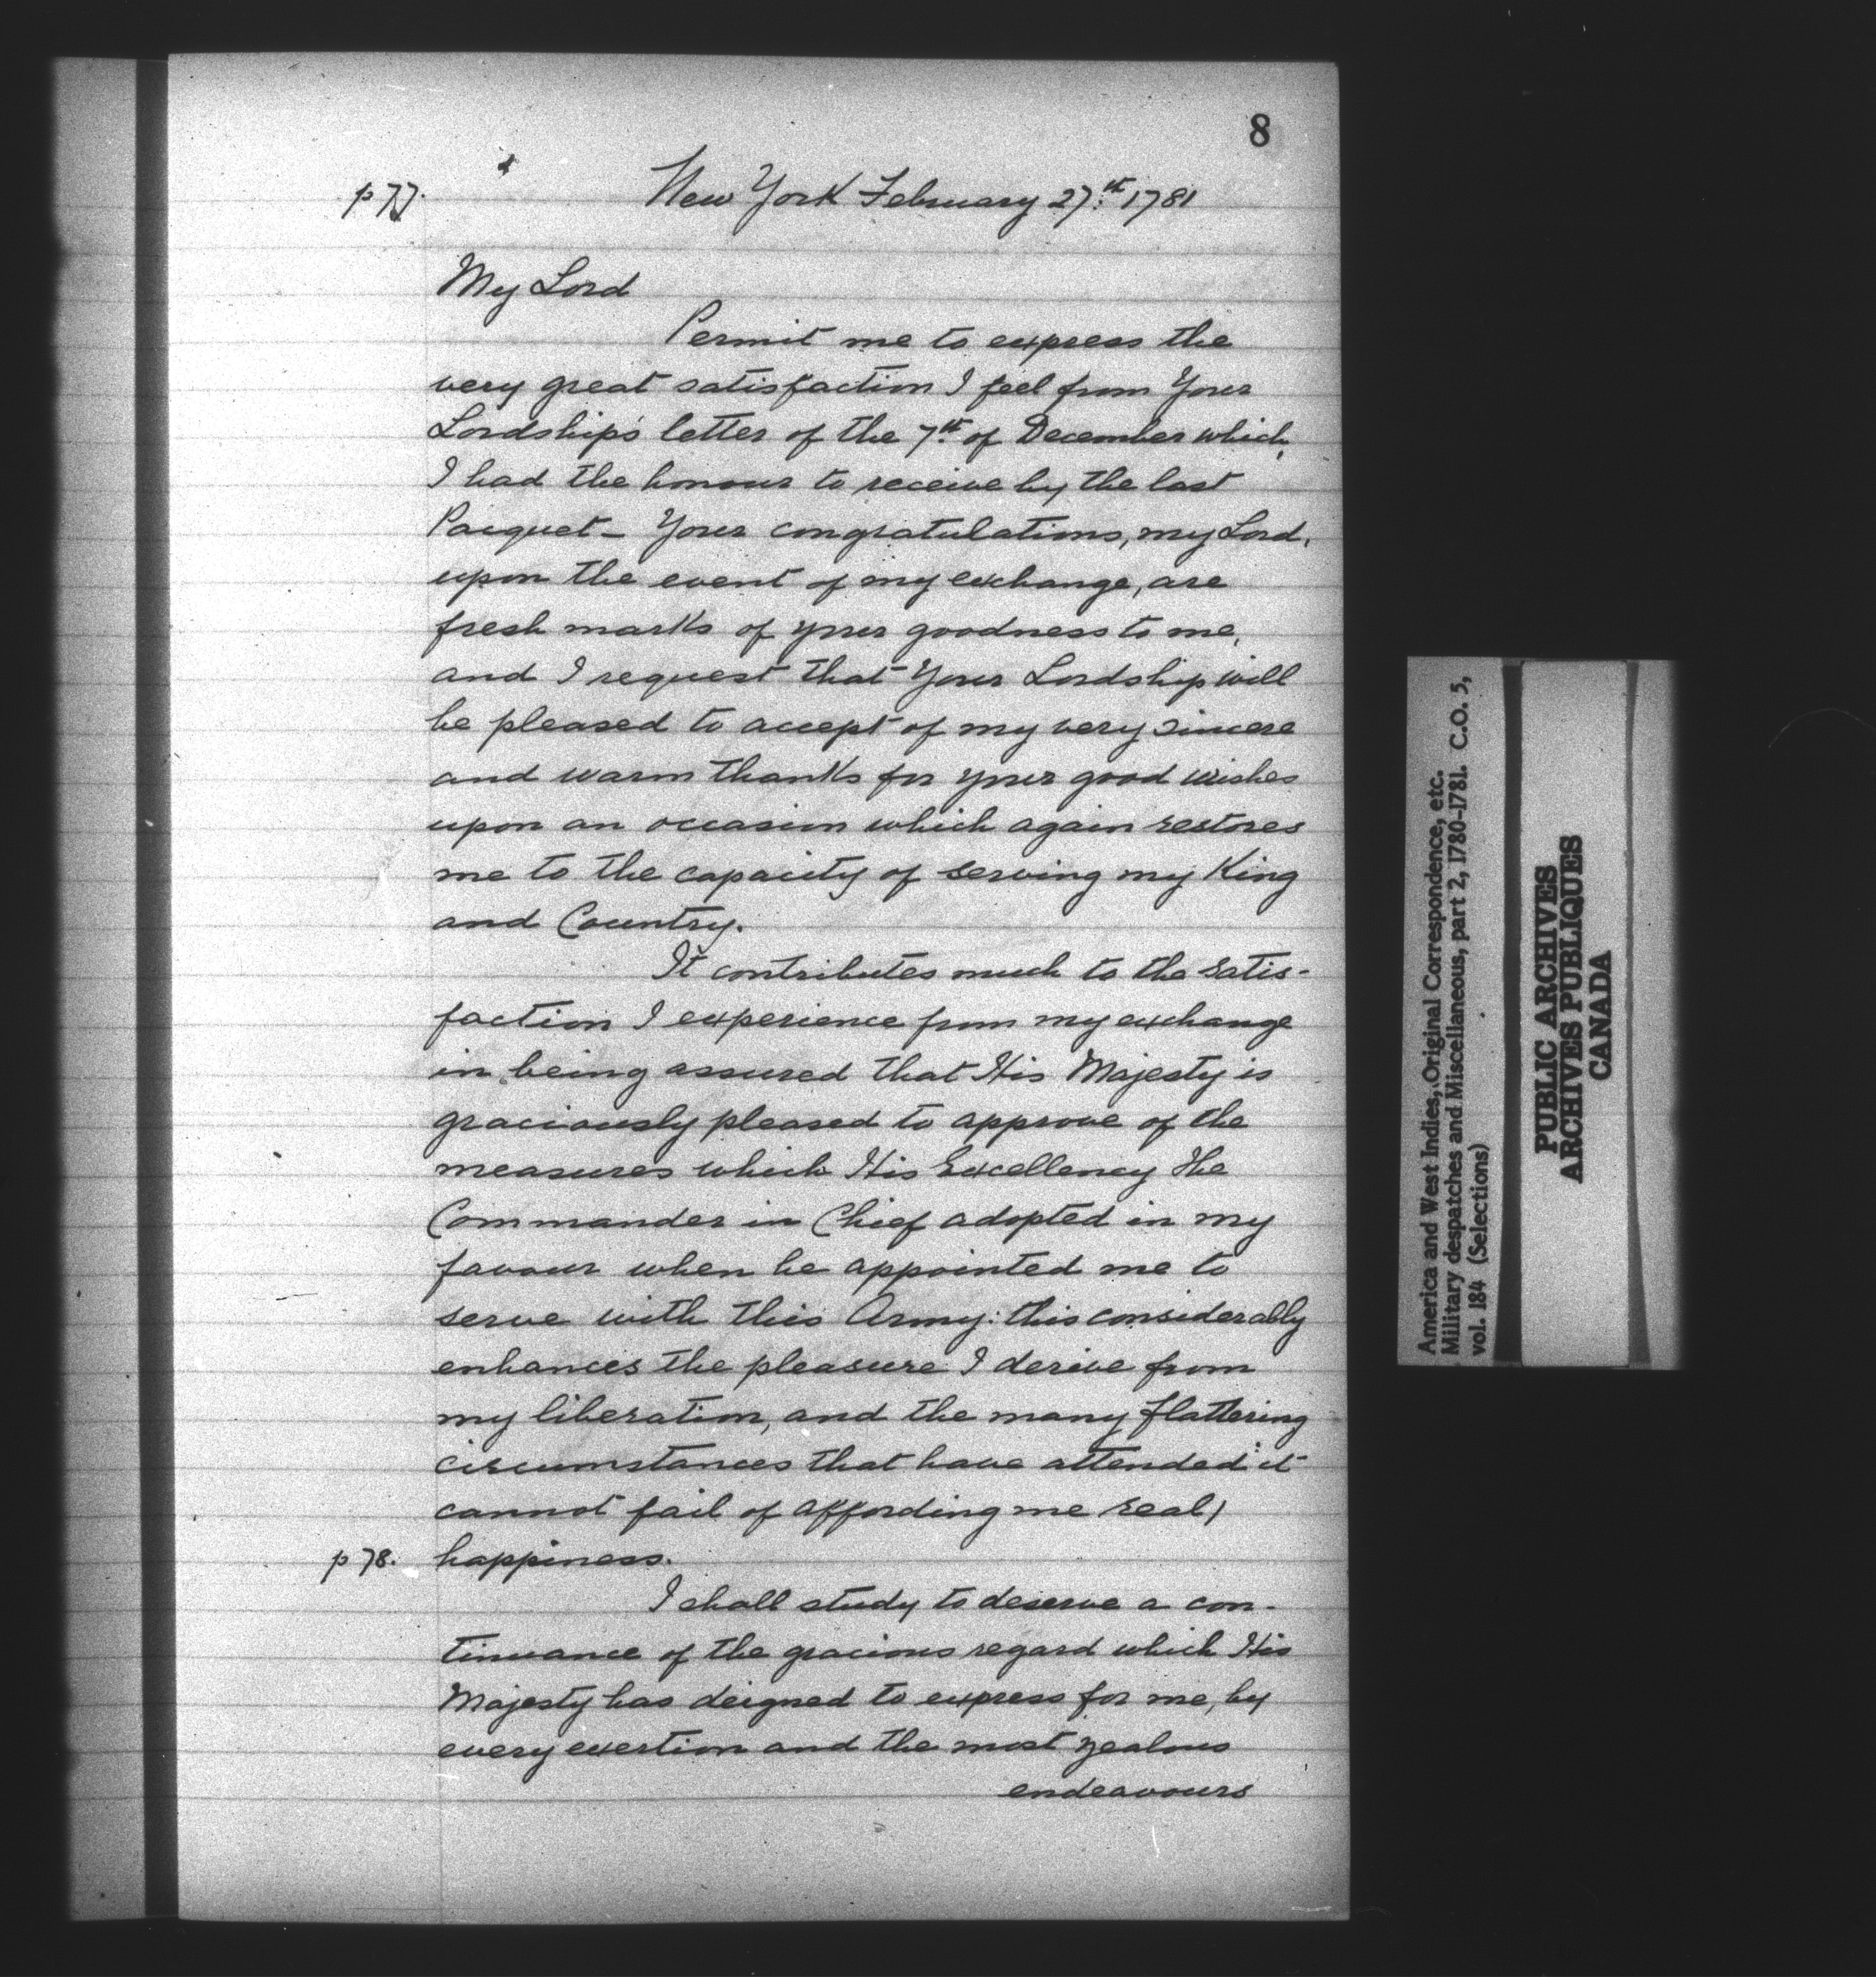 8
p 77. New York February 27.th 1781
My Lord
Permit me to express the
very great satisfaction I feel from Your
Lordship's letter of the 7.th of December which,
I had the honour to receive by the last
Pacquet - Your congratulations, my Lord,
upon the event of my exchange, are
fresh marks of your goodness to me,
and I request that Your Lordship will
be pleased to accept of my very sincere
and warm thanks for your good wishes
upon an occasion which again restores
me to the capacity of serving my King
and Country.
It contributes much to the satis-
faction I experience from my exchange
in being assured that His Majesty is
graciously pleased to approve of the
measures which His Excellency the
Commander in Chief adopted in my
favour when he appointed me to
serve with this Army: this considerably
enhances the pleasure I derive from
my liberation, and the many flattering
circumstances that have attended it
cannot fail of affording me real)
p 78. happiness.
I shall study to deserve a con-
tinuance of the gracious regard which His
Majesty has deigned to express for me, by
every exertion and the most zealous
endeavours
America and West Indies, Original Correspondence, etc.
Military despatches and Miscellaneous, part 2, 1780-1781. C.O. 5,
vol. 184 (Selections)
PUBLIC ARCHIVES
ARCHIVES PUBLIQUES
CANADA